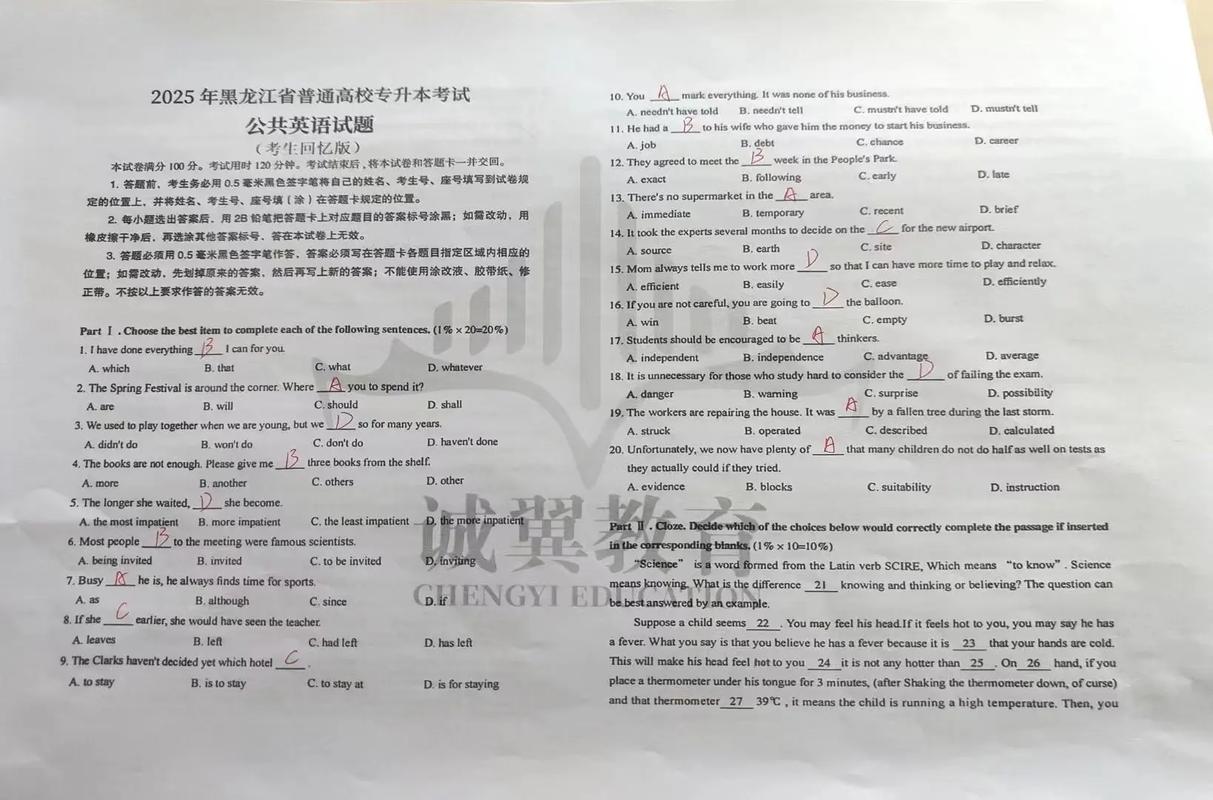 2025 年黑龙江省普通高校专升本考试
公共英语试题
（考生回忆版）
本试卷满分 100 分。考试用时 120 分钟。考试结束后，将本试卷和答题卡一并交回。
1. 答题前，考生务必用 0.5 毫米黑色签字笔将自己的姓名、考生号、座号填写到试卷规
定的位置上，并将姓名、考生号、座号填（涂）在答题卡规定的位置。
2. 每小题选出答案后，用 2B 铅笔把答题卡上对应题目的答案标号涂黑；如需改动，用
橡皮擦干净后，再选涂其他答案标号、答在本试卷上无效。
3. 答题必须用 0.5 毫米黑色签字笔作答、答案必须写在答题卡各题目指定区域内相应的
位置；如需改动，先划掉原来的答案，然后再写上新的答案；不能使用涂改液、胶带纸、修
正带。不按以上要求作答的答案无效。
Part Ⅰ . Choose the best item to complete each of the following sentences. (1% × 20=20%)
1. I have done everything B I can for you.
A. which B. that C. what D. whatever
2. The Spring Festival is around the corner. Where A you to spend it?
A. are B. will C. should D. shall
3. We used to play together when we are young, but we D so for many years.
A. didn't do B. won't do C. don't do D. haven't done
4. The books are not enough. Please give me B three books from the shelf.
A. more B. another C. others D. other
5. The longer she waited, D she become.
A. the most impatient B. more impatient C. the least impatient D. the more inpatient
6. Most people B to the meeting were famous scientists.
A. being invited B. invited C. to be invited D. inviting
7. Busy A he is, he always finds time for sports.
A. as B. although C. since D. if
8. If she C earlier, she would have seen the teacher.
A. leaves B. left C. had left D. has left
9. The Clarks haven't decided yet which hotel C .
A. to stay B. is to stay C. to stay at D. is for staying
10. You A mark everything. It was none of his business.
A. needn't have told B. needn't tell C. mustn't have told D. mustn't tell
11. He had a B to his wife who gave him the money to start his business.
A. job B. debt C. chance D. career
12. They agreed to meet the B week in the People's Park.
A. exact B. following C. early D. late
13. There's no supermarket in the A area.
A. immediate B. temporary C. recent D. brief
14. It took the experts several months to decide on the C for the new airport.
A. source B. earth C. site D. character
15. Mom always tells me to work more D so that I can have more time to play and relax.
A. efficient B. easily C. ease D. efficiently
16. If you are not careful, you are going to D the balloon.
A. win B. beat C. empty D. burst
17. Students should be encouraged to be A thinkers.
A. independent B. independence C. advantage D. average
18. It is unnecessary for those who study hard to consider the D of failing the exam.
A. danger B. warning C. surprise D. possibility
19. The workers are repairing the house. It was A by a fallen tree during the last storm.
A. struck B. operated C. described D. calculated
20. Unfortunately, we now have plenty of A that many children do not do half as well on tests as
they actually could if they tried.
A. evidence B. blocks C. suitability D. instruction
Part Ⅱ . Cloze. Decide which of the choices below would correctly complete the passage if inserted
in the corresponding blanks. (1% × 10=10%)
“Science” is a word formed from the Latin verb SCIRE, Which means “to know”. Science
means knowing. What is the difference 21 knowing and thinking or believing? The question can
be best answered by an example.
Suppose a child seems 22 . You may feel his head.If it feels hot to you, you may say he has
a fever. What you say is that you believe he has a fever because it is 23 that your hands are cold.
This will make his head feel hot to you 24 it is not any hotter than 25 . On 26 hand, if you
place a thermometer under his tongue for 3 minutes, (after Shaking the thermometer down, of curse)
and that thermometer 27 39℃ , it means the child is running a high temperature. Then, you
诚翼教育
CHENGYI EDUCATION